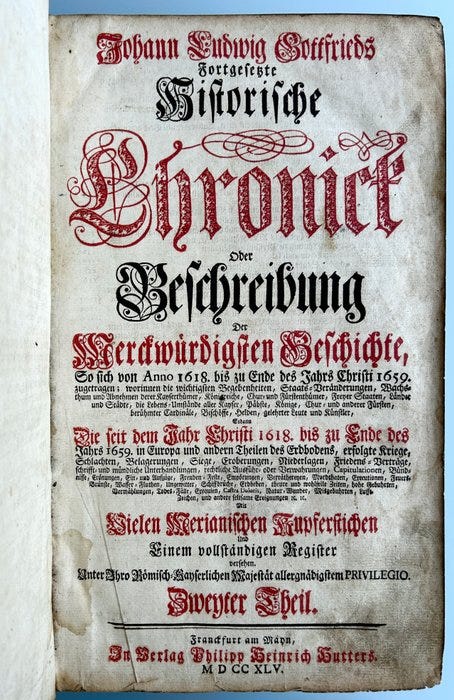 Johann Ludwig Gottfrieds
Fortgesetzte
Historische
Chronick
Oder
Beschreibung
Der
Merckwürdigsten Geschichte,
So sich von Anno 1618. bis zu Ende des Jahrs Christi 1659.
zugetragen; worinnen die wichtigsten Begebenheiten, Staats-Veränderungen, Wachs-
thum und Abnehmen derer Kayserthümer, Königreiche, Chur- und Fürstenthümer, Freyer Staaten, Länder
und Städte, die Lebens-Umstände aller Kayser, Päbste, Könige, Chur- und anderer Fürsten,
berühmter Cardinäle, Bischöffe, Helden, gelehrter Leute und Künstler,
Sodann
Die seit dem Jahr Christi 1618. bis zu Ende des
Jahrs 1659. in Europa und andern Theilen des Erdbodens, erfolgte Kriege,
Schlachten, Belagerungen, Siege, Eroberungen, Niederlagen, Friedens-Verträge,
schrifft- und mündliche Unterhandlungen, rechtliche Ausführ- oder Verwahrungen, Capitulationen, Bünd-
nisse, Crönungen, Ein- und Aufzüge, Freuden-Feste, Empörungen, Verräthereyen, Mordthaten, Executionen, Feuers-
Brünste, Wasser-Fluthen, Ungewitter, Schiffbrüche, Erdbeben, theure und wohlfeile Zeiten, hohe Geburten,
Vermählungen, Todes-Fälle, Exequien, Castra Doloris, Natur-Wunder, Mißgeburthen, Lufft-
Zeichen, und andere seltsame Ereignungen ꝛc. ꝛc.
Mit
Vielen Merianischen Kupferstichen
Und
Einem vollständigen Register
versehen.
Unter Ihro Römisch-Kayserlichen Majestät allergnädigstem PRIVILEGIO.
Zweyter Theil.
Franckfurt am Mayn,
In Verlag Philipp Heinrich Hutters.
M D CC XLV.